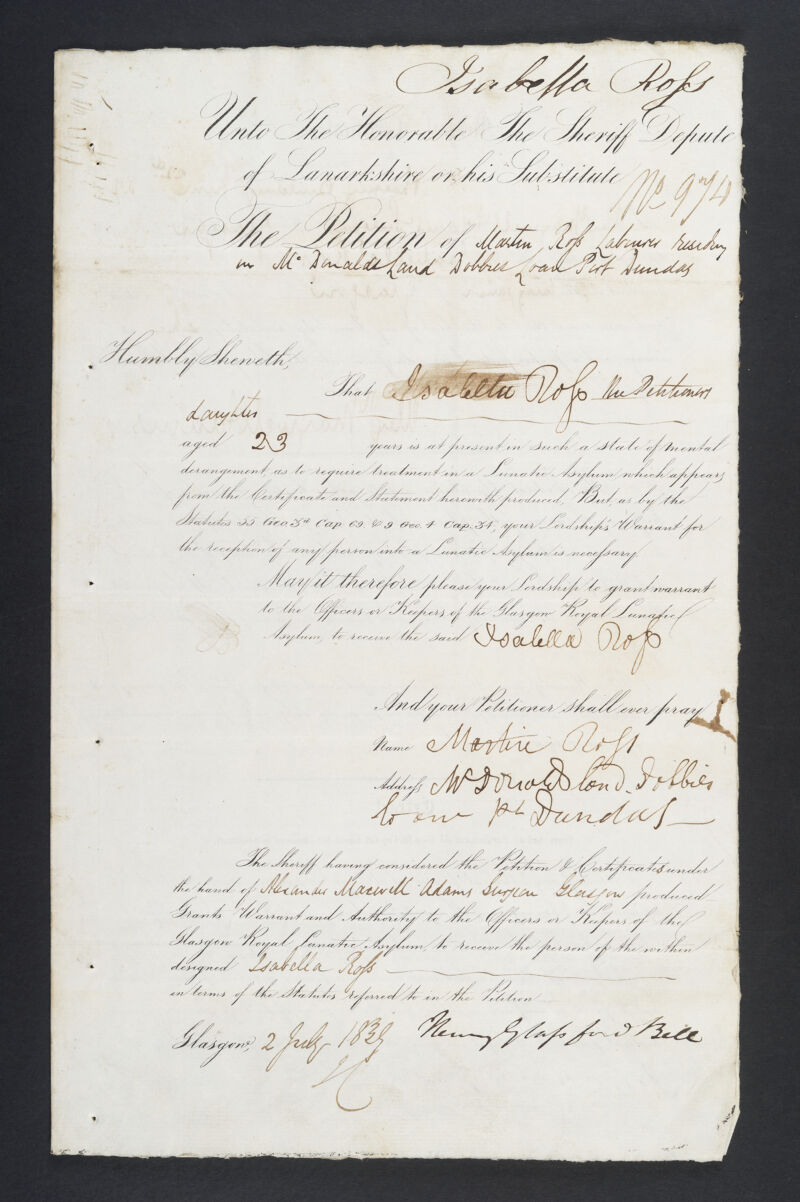 Isabella Ross
Unto The Honorable The Sheriff Depute
of Lanarkshire or his Substitute
No 974
The Petition of Martin Ross Labourer residing
in Mc Donalds Land Dobbies Loan Port Dundas
Humbly Sheweth,
That Isabella Ross the Petitioners
daughter
aged 23 years is at present in such a state of mental
derangement as to require treatment in a Lunatic Asylum which appears
from the Certificate and Statement herewith produced, But, as by the
Statutes 55 Geo. 3d Cap. 69 & 9 Geo. 4 Cap. 34, your Lordship's Warrant for
the reception of any person into a Lunatic Asylum is necessary
May it therefore please your Lordship to grant warrant
to the Officers or Keepers of the Glasgow Royal Lunatic
Asylum, to receive the said Isabella Ross
And your Petitioner shall ever pray
Name Martin Ross
Address McDonalds Land Dobbies
Loan Pt Dundas
The Sheriff having considered the Petition & Certificates under
the hand of Alexander Maxwell Adams Surgeon Glasgow produced
Grants Warrant and Authority to the Officers or Keepers of the
Glasgow Royal Lunatic Asylum to receive the person of the within
designed Isabella Ross
in terms of the Statutes referred to in the Petition
Glasgow, 2 July 1839 Henry Glassford Bell